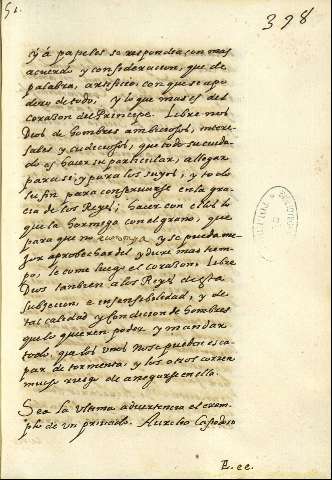 51.
398
ẏ á papeles se respondía con mas
acuerdo y consideracion, que de
palabra, artificio, con que se apo
dero de todo, y lo que mas es del
corazon del Principe. Libre nos
Dios de hombres ambiciosos, intere-
sales y cudiciosos, que todo su cuida-
do es hacer su particular, allegar
para si, y para los suyos, y todo
su fin para conservarse en la gra-
cia de los Reyes; hacer con ellos lo
que la hormiga con el grano, que
para que no y se pueda me-
jor aprobechar del y dure mas tiem-
po, le come luego el corazon, Libre
Dios tambien a los Reyes de esta
subjecion, e insensibilidad, y de
tal calidad y condicion de hombres
que lo quieren poder y mandar
todo, que los unos no se pueden esca-
par de tormenta, y los otros corren
mucho riesgo de anegarse en ella.
Sea la ultima advertencia el exem-
plo de un privado. Aurelio Casiodoro
E.ee.